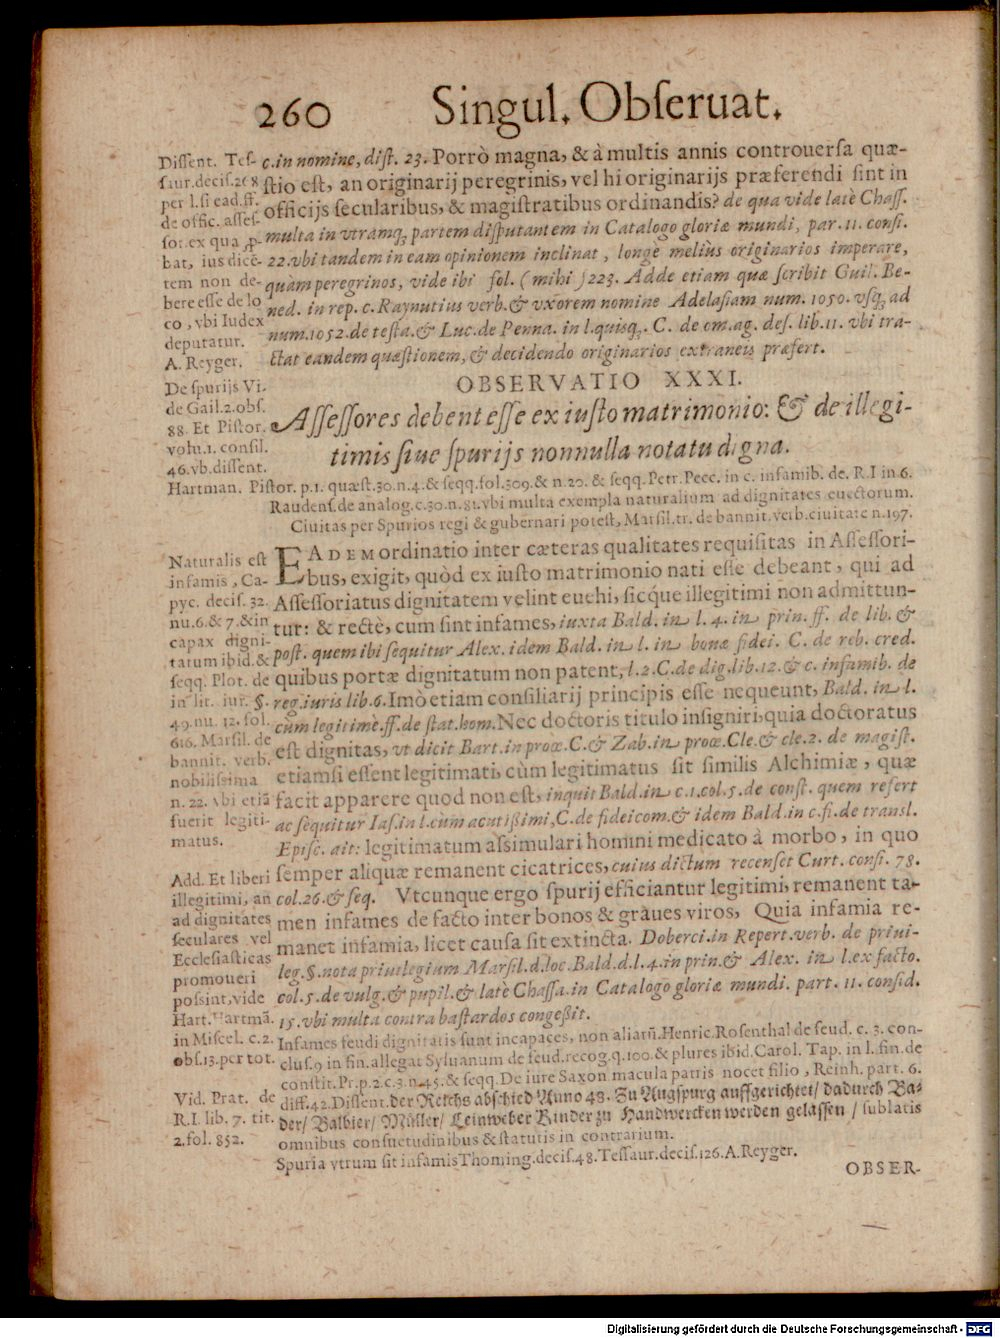 260 Singul. Obſeruat.
c. in nomine, diſt. 23. Porrò magna, & à multis annis controuerſa quæ-
ſtio eſt, an originarij peregrinis, vel hi originarijs præferendi ſint in
officijs ſecularibus, & magiſtratibus ordinandis? de qua vide latè Chaſſ.
multa in vtramq; partem diſputantem in Catalogo gloriæ mundi, par. 11. conſi.
22. vbi tandem in eam opinionem inclinat, longè meliùs originarios imperare,
quàm peregrinos, vide ibi fol. (mihi) 223. Adde etiam quæ ſcribit Guil. Be-
ned. in rep. c. Raynutius verb. & vxorem nomine Adelaſiam num. 1050. vſq; ad
num. 1052. de teſta. & Luc. de Penna. in l. quisq;. C. de om. ag. deſ. lib. 11. vbi tra-
ctat eandem quæſtionem, & decidendo originarios extraneis præfert.
Diſſent. Teſ-
ſaur. deciſ. 268
per l. ſi ead. ff.
de offic. aſſeſ-
ſor. ex qua ꝓ-
bat, ius dicē-
tem non de-
bere eſſe de lo
co, vbi Iudex
deputatur.
A. Reyger.
OBSERVATIO XXXI.
Aſſeſſores debent eſſe ex iuſto matrimonio: & de illegi-
timis ſiue ſpurijs nonnulla notatu digna.
De ſpurijs Vi.
de Gail. 2. obſ.
88. Et Piſtor.
volu. 1. conſil.
46. vb. diſſent.
Hartman. Piſtor. p. 1. quæſt. 30. n. 4. & ſeqq. fol. 309. & n. 20. & ſeqq. Petr. Pecc. in c. infamib. de. R. I in 6.
Raudenſ. de analog. c. 30. n. 81. vbi multa exempla naturalium ad dignitates euectorum.
Ciuitas per Spurios regi & gubernari poteſt, Marſil. tr. de bannit. verb. ciuitate n. 197.
EADEM ordinatio inter cæteras qualitates requiſitas in Aſſeſſori-
bus, exigit, quòd ex iuſto matrimonio nati eſſe debeant, qui ad
Aſſeſſoriatus dignitatem velint euehi, ſicque illegitimi non admittun-
tur: & rectè, cum ſint infames, iuxta Bald. in l. 4. in prin. ff. de lib. &
poſt. quem ibi ſequitur Alex. idem Bald. in l. in bonæ fidei. C. de reb. cred.
quibus portæ dignitatum non patent, l. 2. C. de dig. lib. 12. & c. infamib. de
reg. iuris lib. 6. Imò etiam conſiliarij principis eſſe nequeunt, Bald. in l.
cùm legitimè. ff. de ſtat. hom. Nec doctoris titulo inſigniri, quia doctoratus
eſt dignitas, vt dicit Bart. in proœ. C. & Zab. in proœ. Cle. & cle. 2. de magiſt.
etiamſi eſſent legitimati, cùm legitimatus ſit ſimilis Alchimiæ, quæ
facit apparere quod non eſt, inquit Bald. in c. 1. col. 5. de conſt. quem refert
ac ſequitur Iaſ. in l. cum acutißimi, C. de fideicom. & idem Bald. in c. fi. de tranſl.
Epiſc. ait: legitimatum aſsimulari homini medicato à morbo, in quo
ſemper aliquæ remanent cicatrices, cuius dictum recenſet Curt. conſi. 78.
col. 26. & ſeq. Vtcunque ergo ſpurij efficiantur legitimi, remanent ta-
men infames de facto inter bonos & gràues viros, Quia infamia re-
manet infamia, licet cauſa ſit extincta. Doberci. in Repert. verb. de priui-
leg. §. nota priuilegium Marſil. d. loc. Bald. d. l. 4. in prin. & Alex. in l. ex facto.
col. 5. de vulg. & pupil. & latè Chaſſa. in Catalogo gloriæ mundi. part. 11. conſid.
15. vbi multa contra baſtardos congeßit.
Naturalis eſt
infamis, Ca-
pyc. deciſ. 32.
nu. 6. & 7. & in
capax digni-
tatum ibid. &
ſeqq. Plot. de
in lit. iur. §.
49. nu. 12. fol.
616. Marſil. de
bannit. verb.
nobilisſima
n. 22. vbi etiā
fuerit legiti-
matus.
Add. Et liberi
illegitimi, an
ad dignitates
ſeculares vel
Eccleſiaſticas
promoueri
poſsint, vide
Hart. Hartmā.
in Miſcel. c. 2.
obſ. 13. per tot.
Vid. Prat. de
R. I. lib. 7. tit.
2. fol. 852.
Infames feudi dignitatis ſunt incapaces, non aliarū. Henric. Roſenthal de feud. c. 3. con-
cluſ. 9 in fin. allegat Syluanum de feud. recog. q. 100. & plures ibid. Carol. Tap. in l. fin. de
conſtit. Pr. p. 2. c. 3. n. 45. & ſeqq. De iure Saxon macula patris nocet filio, Reinh. part. 6.
diff. 42. Diſſent. der Reichs abſchied Anno 48. Zu Augſpurg auffgerichtet/ dadurch Ba-
der/ Balbier/ Müller/ Leinweber Kinder zu Handwercken werden gelaſſen/ ſublatis
omnibus conſuetudinibus & ſtatutis in contrarium.
Spuria vtrum ſit infamis Thoming. deciſ. 48. Teſſaur. deciſ. 126. A. Reyger.
OBSER-
Digitalisierung gefördert durch die Deutsche Forschungsgemeinschaft - DFG